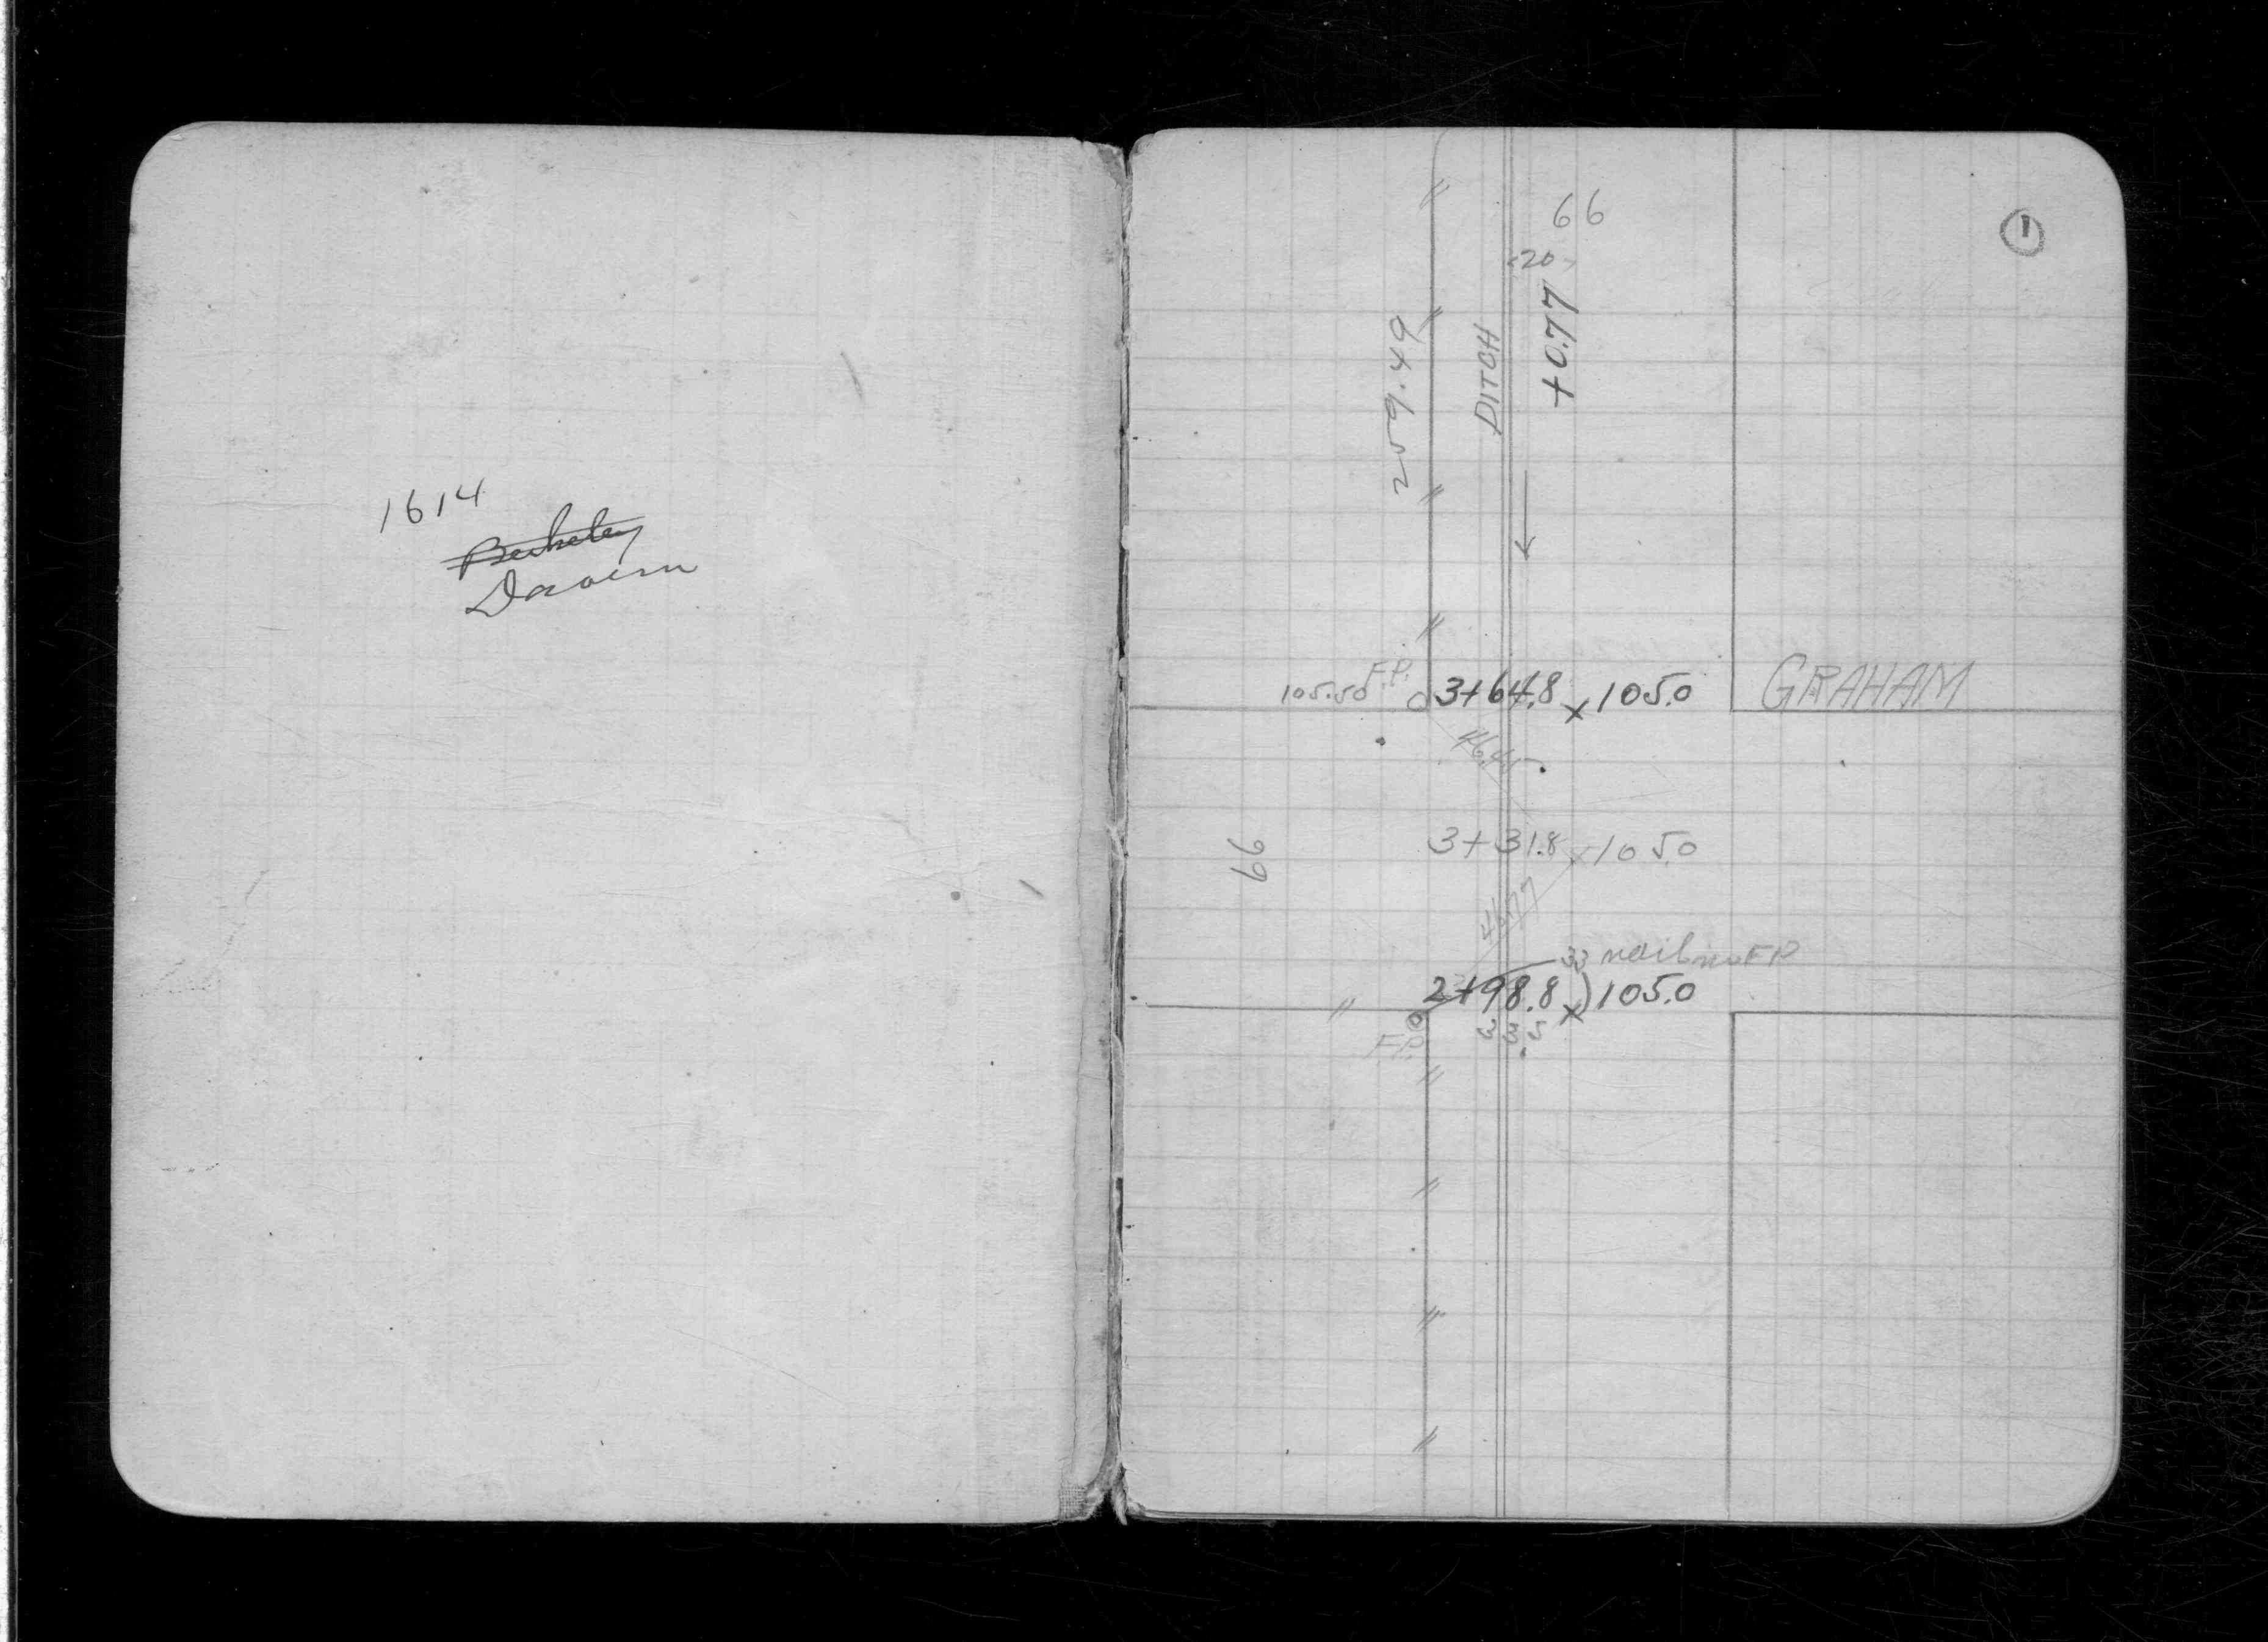 1614
Berkeley
Davern
1
66
20
+0.77
DITCH
259.49
F.P.
105.50
3+64.8 x 105.0
GRAHAM
3+31.8 x 105.0
66
46.77
33 nail in FP
2+98.8 x 105.0
F.P.